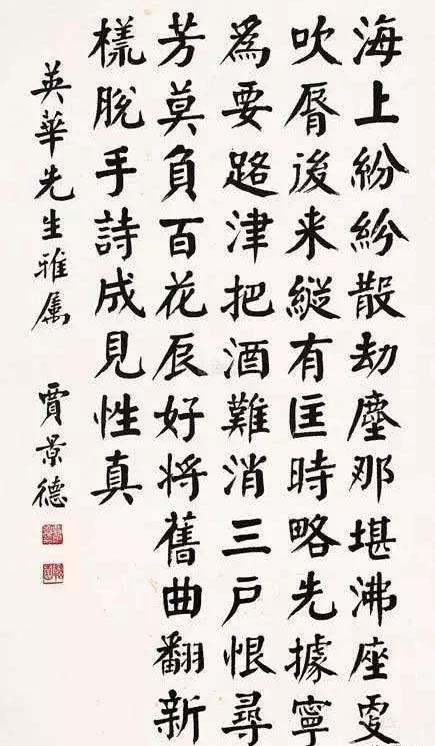 海上紛紛散劫塵那堪沸座更
吹脣後来縱有匡時略先據寧
為要路津把酒難消三戶恨尋
芳莫負百花辰好將舊曲翻新
樣脫手詩成見性真
英華先生雅属 賈景德